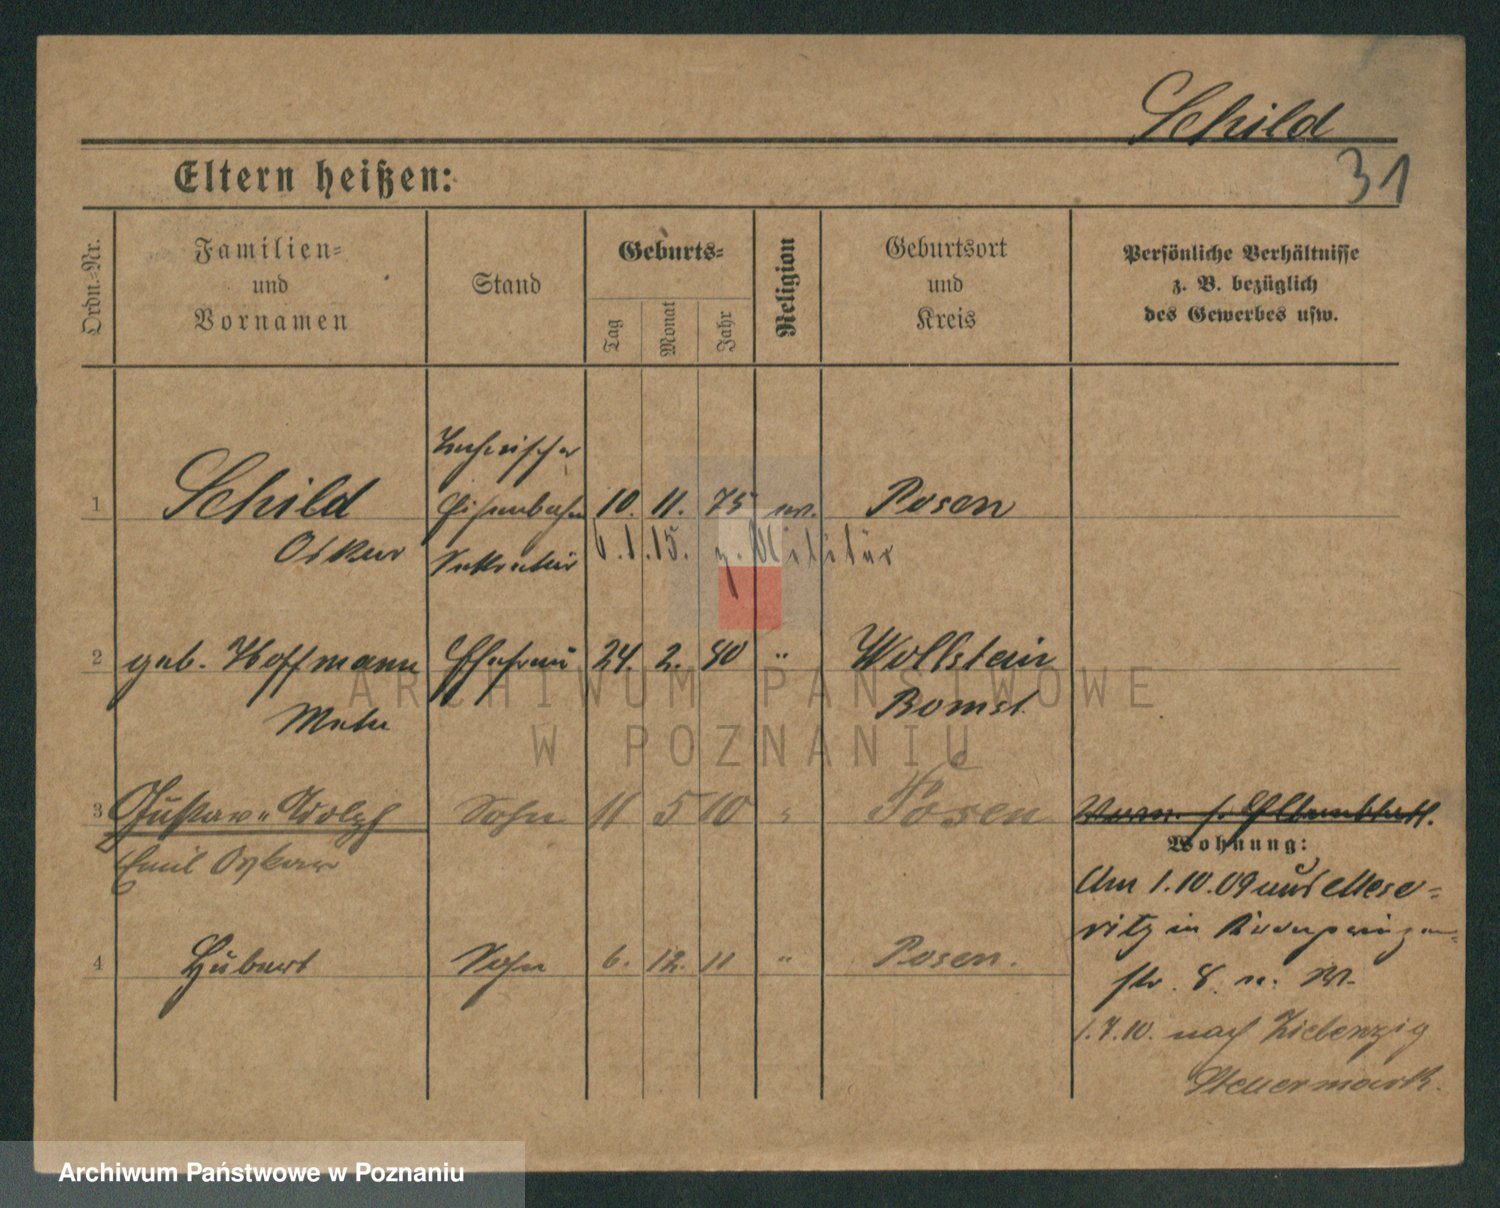 Schild
31
Eltern heißen:
Ordn.-Nr.
Familien-
und
Vornamen
Stand
Geburts-
Tag
Monat
Jahr
Religion
Geburtsort
und
Kreis
Persönliche Verhältnisse
z. B. bezüglich
des Gewerbes usw.
Technischer
1 Schild Eisenbahn 10. 11. 75 ev. Posen
Oskar Sekretär 6.1.15. z. Militär
2 geb. Hoffmann Ehefrau 24. 2. 80 " Wollstein
Meta Bomst
3 Gustav Adolf Sohn 11 5 10 " Posen
Wohnung:
Emil Oskar
Am 1.10.09 aus Mese-
ritz in Kronprinzen-
4 Hubert Sohn 6. 12. 11 " Posen.
str. 8.
1.7.10. nach Zielenzig
ARCHIWUM PAŃSTWOWE
W POZNANIU
Archiwum Państwowe w Poznaniu